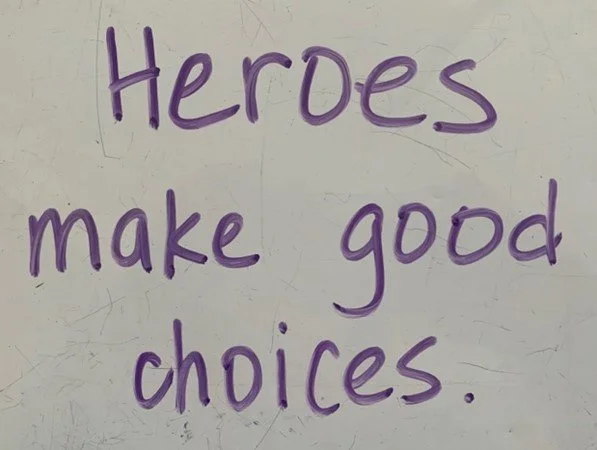 Heroes
make good
choices.